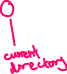 current
directory